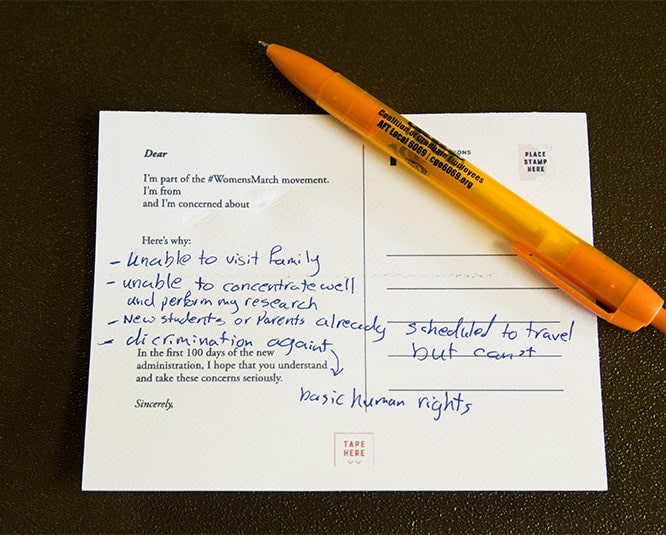 Dear
I'm part of the #WomensMarch movement.
I'm from
and I'm concerned about
Here's why:
- Unable to visit family
- unable to concentrate well
and perform my research
- New students or Parents already scheduled to travel
but cannt
- dicrimination againt
basic human rights
In the first 100 days of the new
administration, I hope that you understand
and take these concerns seriously.
Sincerely,
TAPE
HERE
PLACE
STAMP
HERE
Coalition of Employees
AFT Local 6069 | cge6069.org